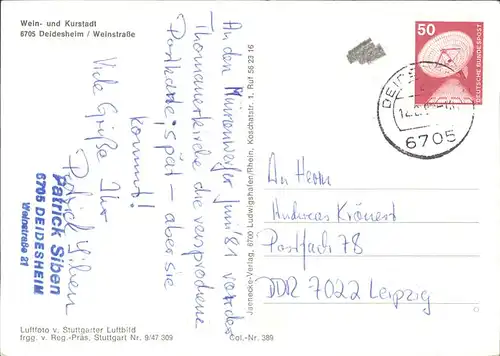 Wein- und Kurstadt
6705 Deidesheim / Weinstraße
An den Münzenweiser Juni '81 vor der
Thomanerkirche die versprochene
Postkarte, spät – aber sie
kommt!
Viele Grüße Ihr
Patrick Siben
Patrick Siben
6705 DEIDESHEIM
Weinstraße 21
Luftfoto v. Stuttgarter Luftbild
frgg. v. Reg.-Präs. Stuttgart Nr. 9/47 309
Col.-Nr. 389
Jaenecke-Verlag, 6700 Ludwigshafen/Rhein, Koschatstr. 1, Ruf 56 23 16
50
DEUTSCHE BUNDESPOST
6705
An Herrn
Andreas Krönert
Postfach 78
DDR 7022 Leipzig